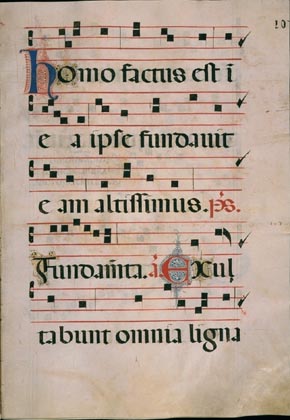 107
Homo factus est i
e a ipse fundavit
e am altissimus. ps.
Fundam̄ta. a. Exul
tabunt omnia ligna